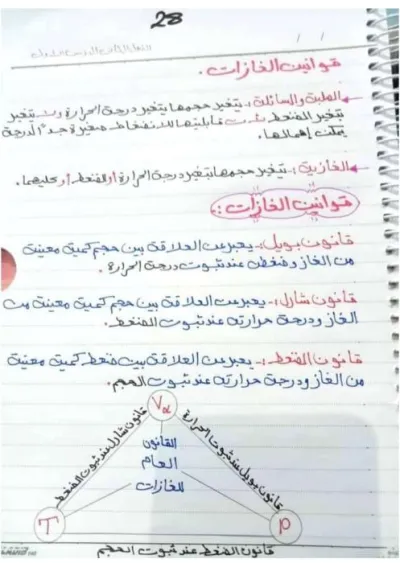 28
/ /
قوانين الغازات .
الصلبة والسائلة :- يتغير حجمها بتغير درجة الحرارة ولا يتغير
بتغير الضغط لأن قابليتها للانضغاط صغيرة جداً لدرجة
يمكن إهمالها .
الغازية :- يتغير حجمها بتغير درجة الحرارة أو الضغط أو كليهما .
قوانين الغازات :-
قانون بويل :- يعبر عن العلاقة بين حجم كمية معينة
من الغاز وضغطه عند ثبوت درجة الحرارة .
قانون شارل :- يعبر عن العلاقة بين حجم كمية معينة من
الغاز ودرجة حرارته عند ثبوت الضغط .
قانون الضغط :- يعبر عن العلاقة بين ضغط كمية معينة
من الغاز ودرجة حرارته عند ثبوت الحجم .
قانون شارل عند ثبوت الضغط
قانون بويل عند ثبوت الحرارة
القانون
العام
للغازات
T
P
قانون الضغط عند ثبوت الحجم